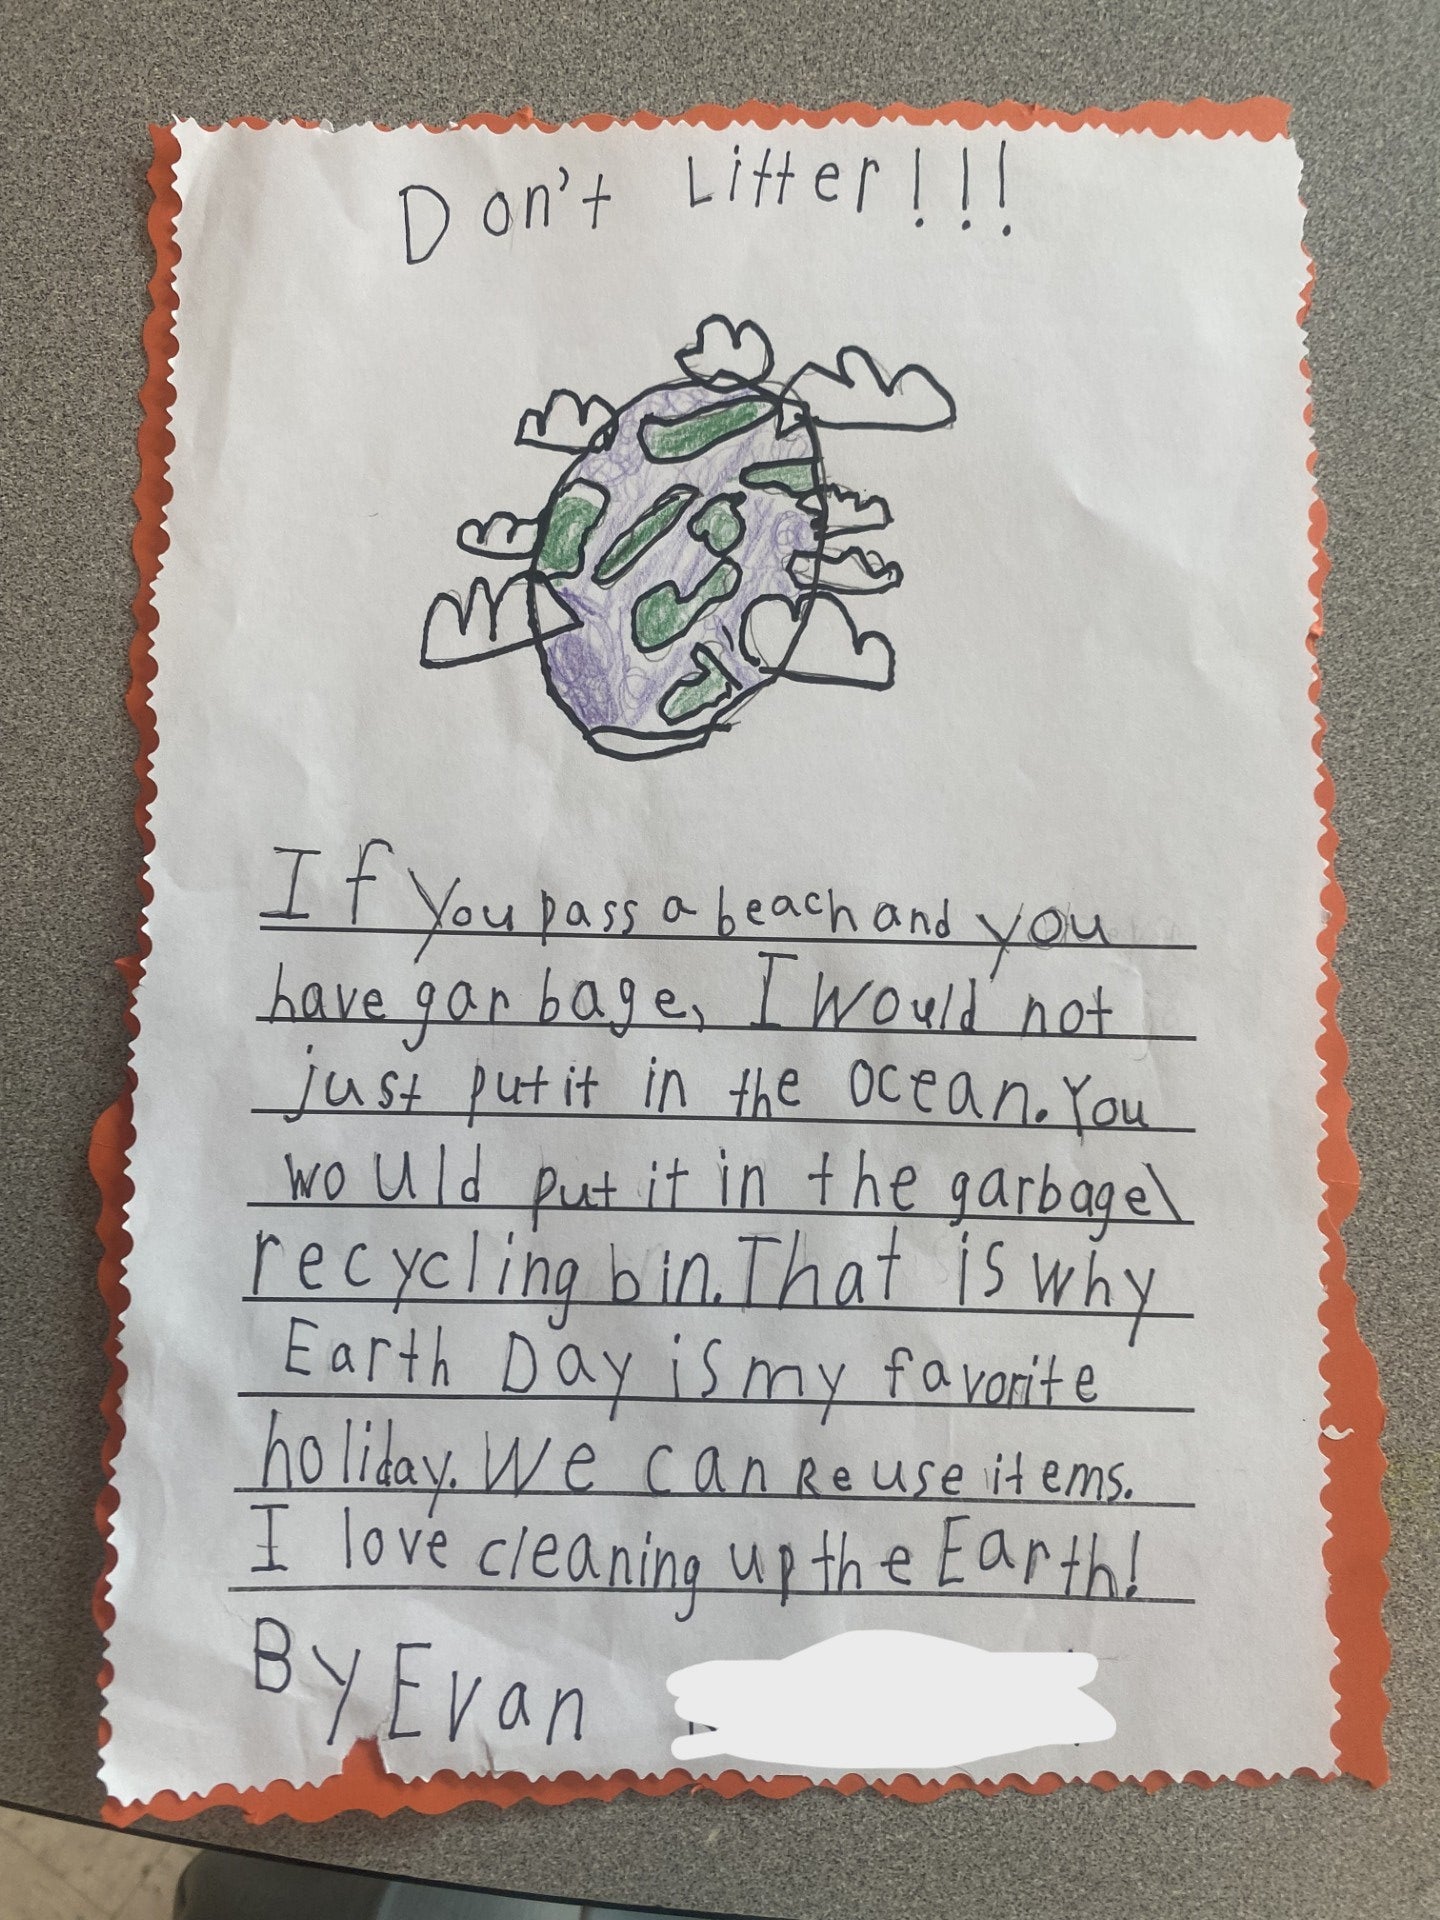 Don't Litter!!!
If you pass a beach and you
have garbage, I would not
just put it in the ocean. You
would put it in the garbage\
recycling bin. That is why
Earth Day is my favorite
holiday. We can Reuse items.
I love cleaning up the Earth!
By Evan